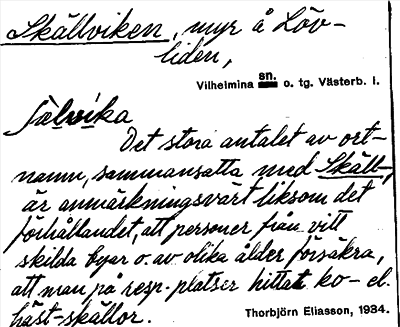 Skällviken, myr å Löv-
liden,
Vilhelmina sn. o. tg. Västerb. l.
Det stora antalet av ort-
namn, sammansatta med Skäll-,
är anmärkningsvärt liksom det
förhållandet, att personer från vitt
skilda byar o. av olika ålder försäkra,
att man på resp. platser hittat ko- el.
häst-skällor.
Thorbjörn Eliasson, 1934.